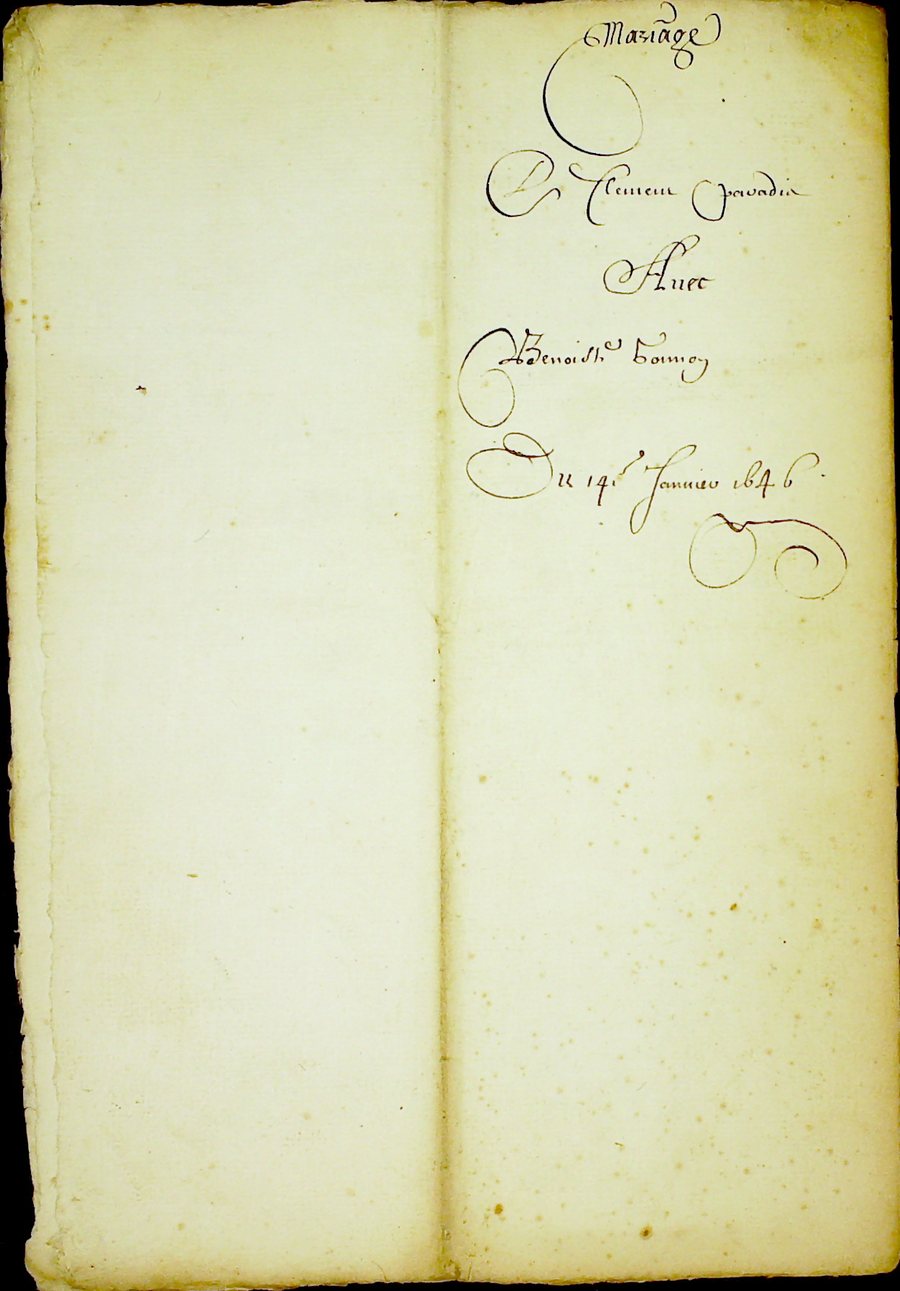 Mariage
De Clement paradis
Auec
Benoiste bonnon
Du 14e Januier 1646